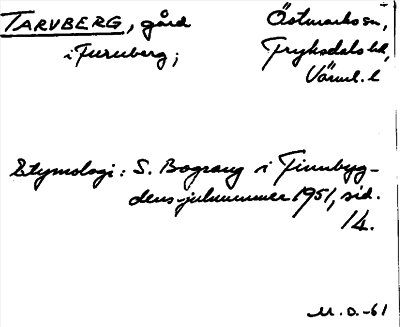 TARVBERG, gård Östmarks sn,
i Furuberg; Fryksdals hd,
Värml. l
Etymologi: S. Bograng i Finnbyg-
dens julnummer 1951, sid.
14.
M.O.-61